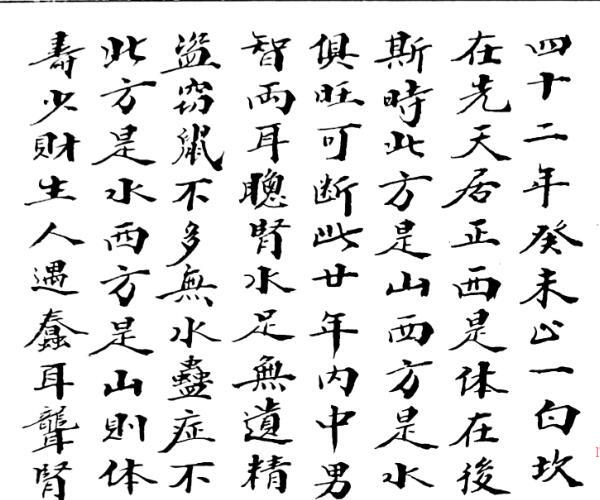 四十二年癸未止一白坎
在先天居正西是体在後
斯時此方是山西方是水
俱旺可断此廿年内中男
智両耳聰腎水足無遺精
盗窃鼠不多無水蠱症不
此方是水西方是山則体
壽少財生人遇蠢耳聾腎